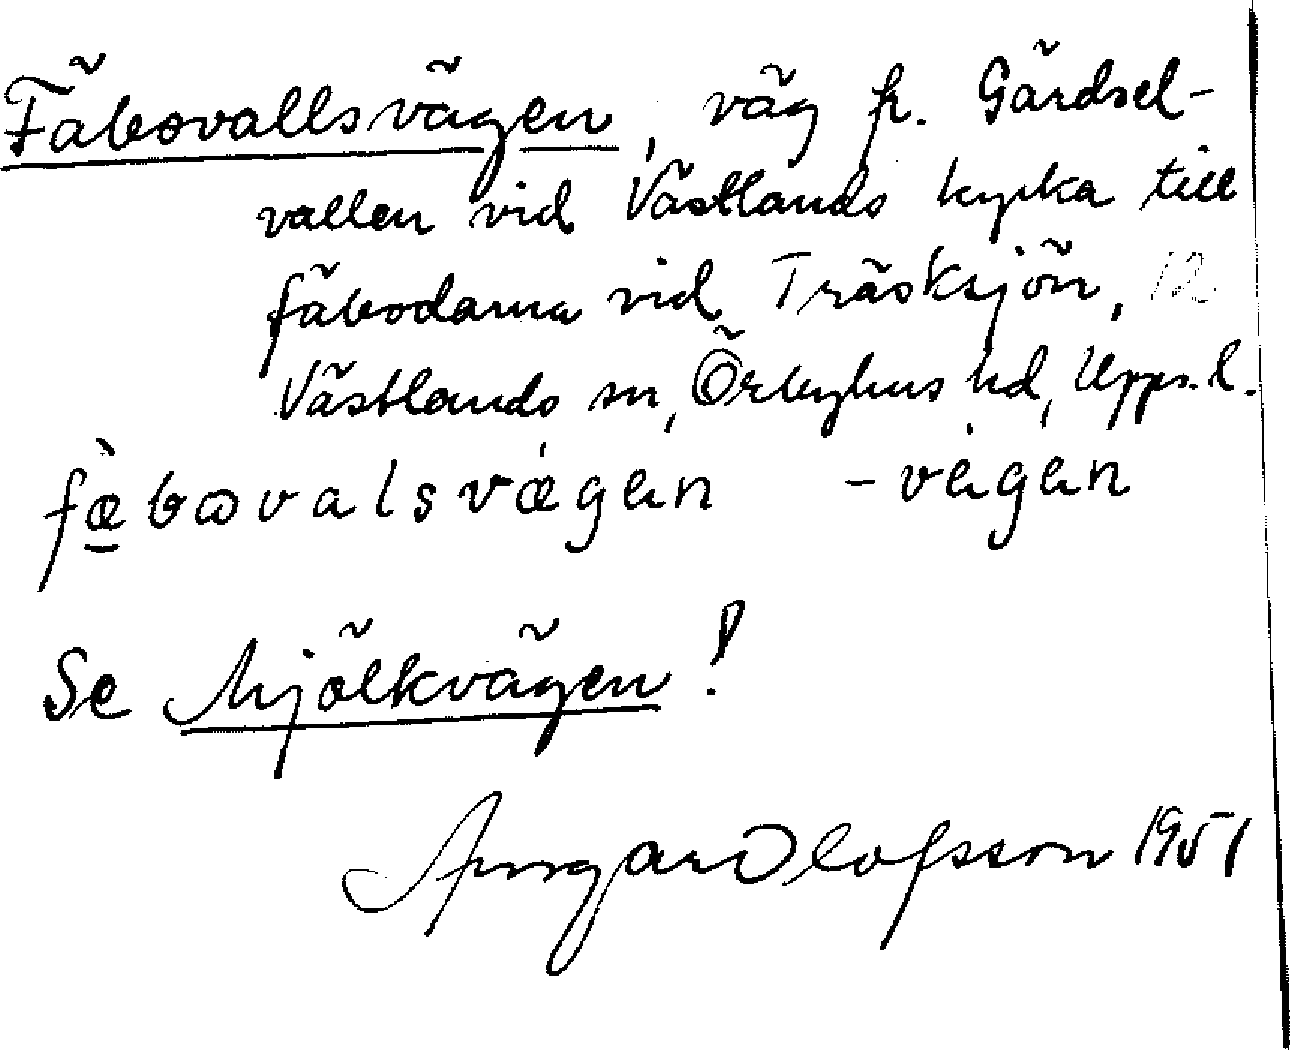 Fäbovallsvägen, väg fr. Gärdsel-
vallen vid Västlands kyrka till
fäbodarna vid Träsksjön,
Västlands sn, Örbyhus hd, Upps. l.
fæ̀bωvalsvǽgən -végən
Se Mjölkvägen!
Olofsson 1951